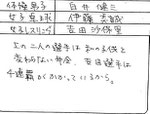 体操男子 白井健三
女子卓球 伊藤美誠
女子レスリング 吉田沙保里
上の二人の選手は私の年代と
変わらない部分、吉田選手は
4連覇がかかっているから。